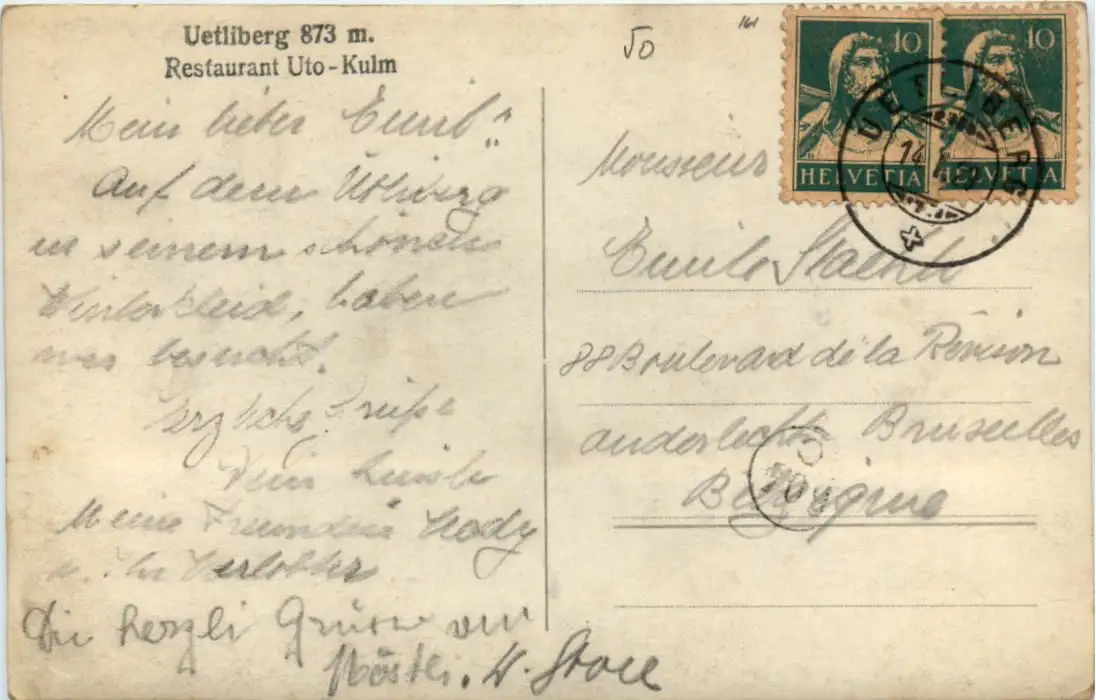 Uetliberg 873 m.
Restaurant Uto-Kulm
50
161
10 10
HELVETIA HELVETIA
UETLIBERG
14
Mein lieber Emil"
Auf dem Ütliberg
in seinem schönen
Winterkleid, haben
wir besucht.
Herzliche Grüsse
Dein
Meine Freundin Hedy
u. Ihr Verlobter
Die herzli Grüsse von
W. Stoll
Monsieur
Emile
88 Boulevard de la Révision
anderlecht Bruxelles
Belgique